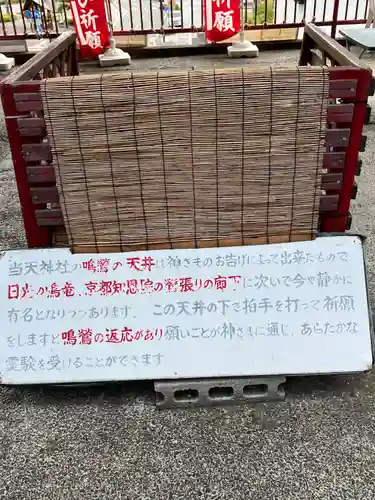 祈願
祈願
当天神社の鳴鶯の天井は神さまのお告げによって出来たもので
日光の鳴竜、京都知恩院の鶯張りの廊下に次いで今や静かに
有名となりつつあります。この天井の下で拍手を打って祈願
をしますと鳴鶯の返応があり願いごとが神さまに通じ、あらたかな
霊験を受けることができます